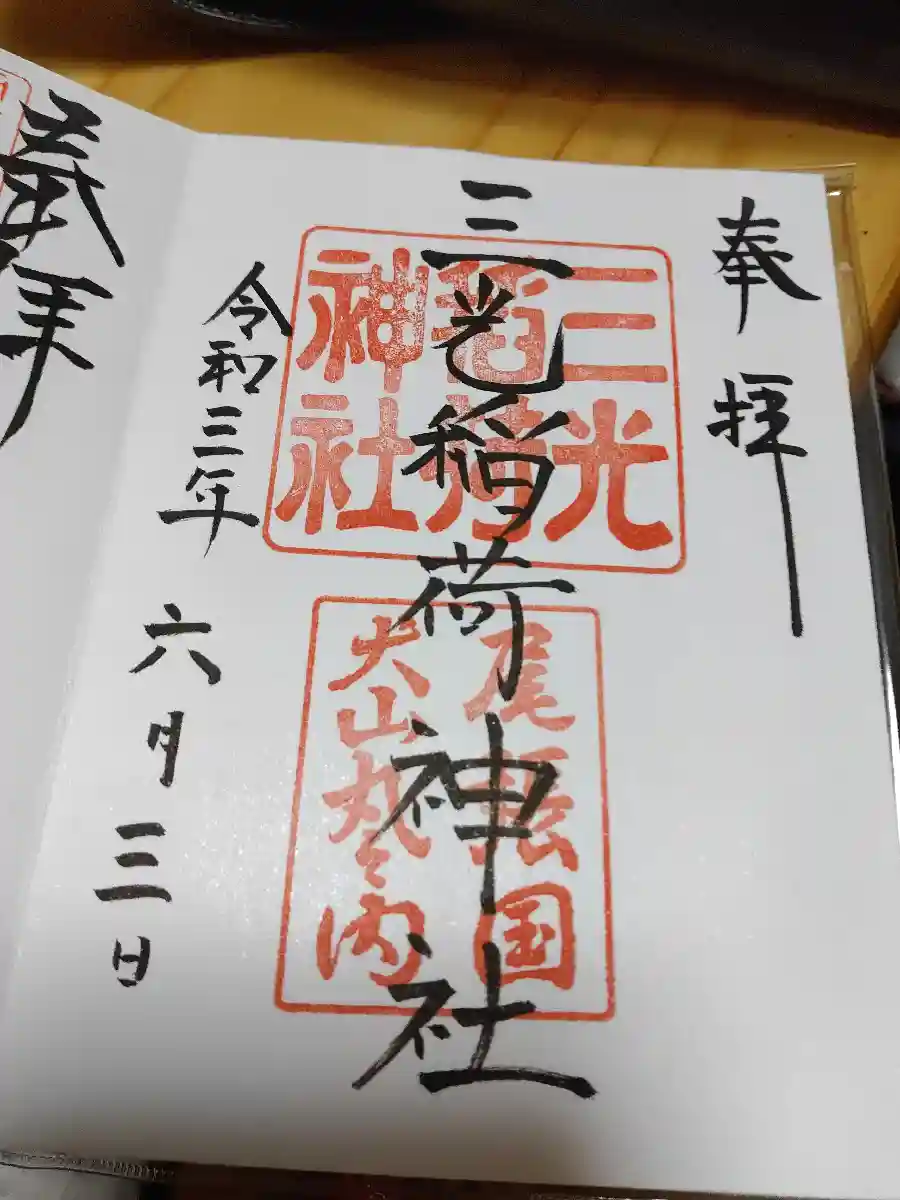 奉拝
三光稲荷神社
三光
稲荷
神社
尾張国
犬山丸之内
令和三年 六月三日
奉拝